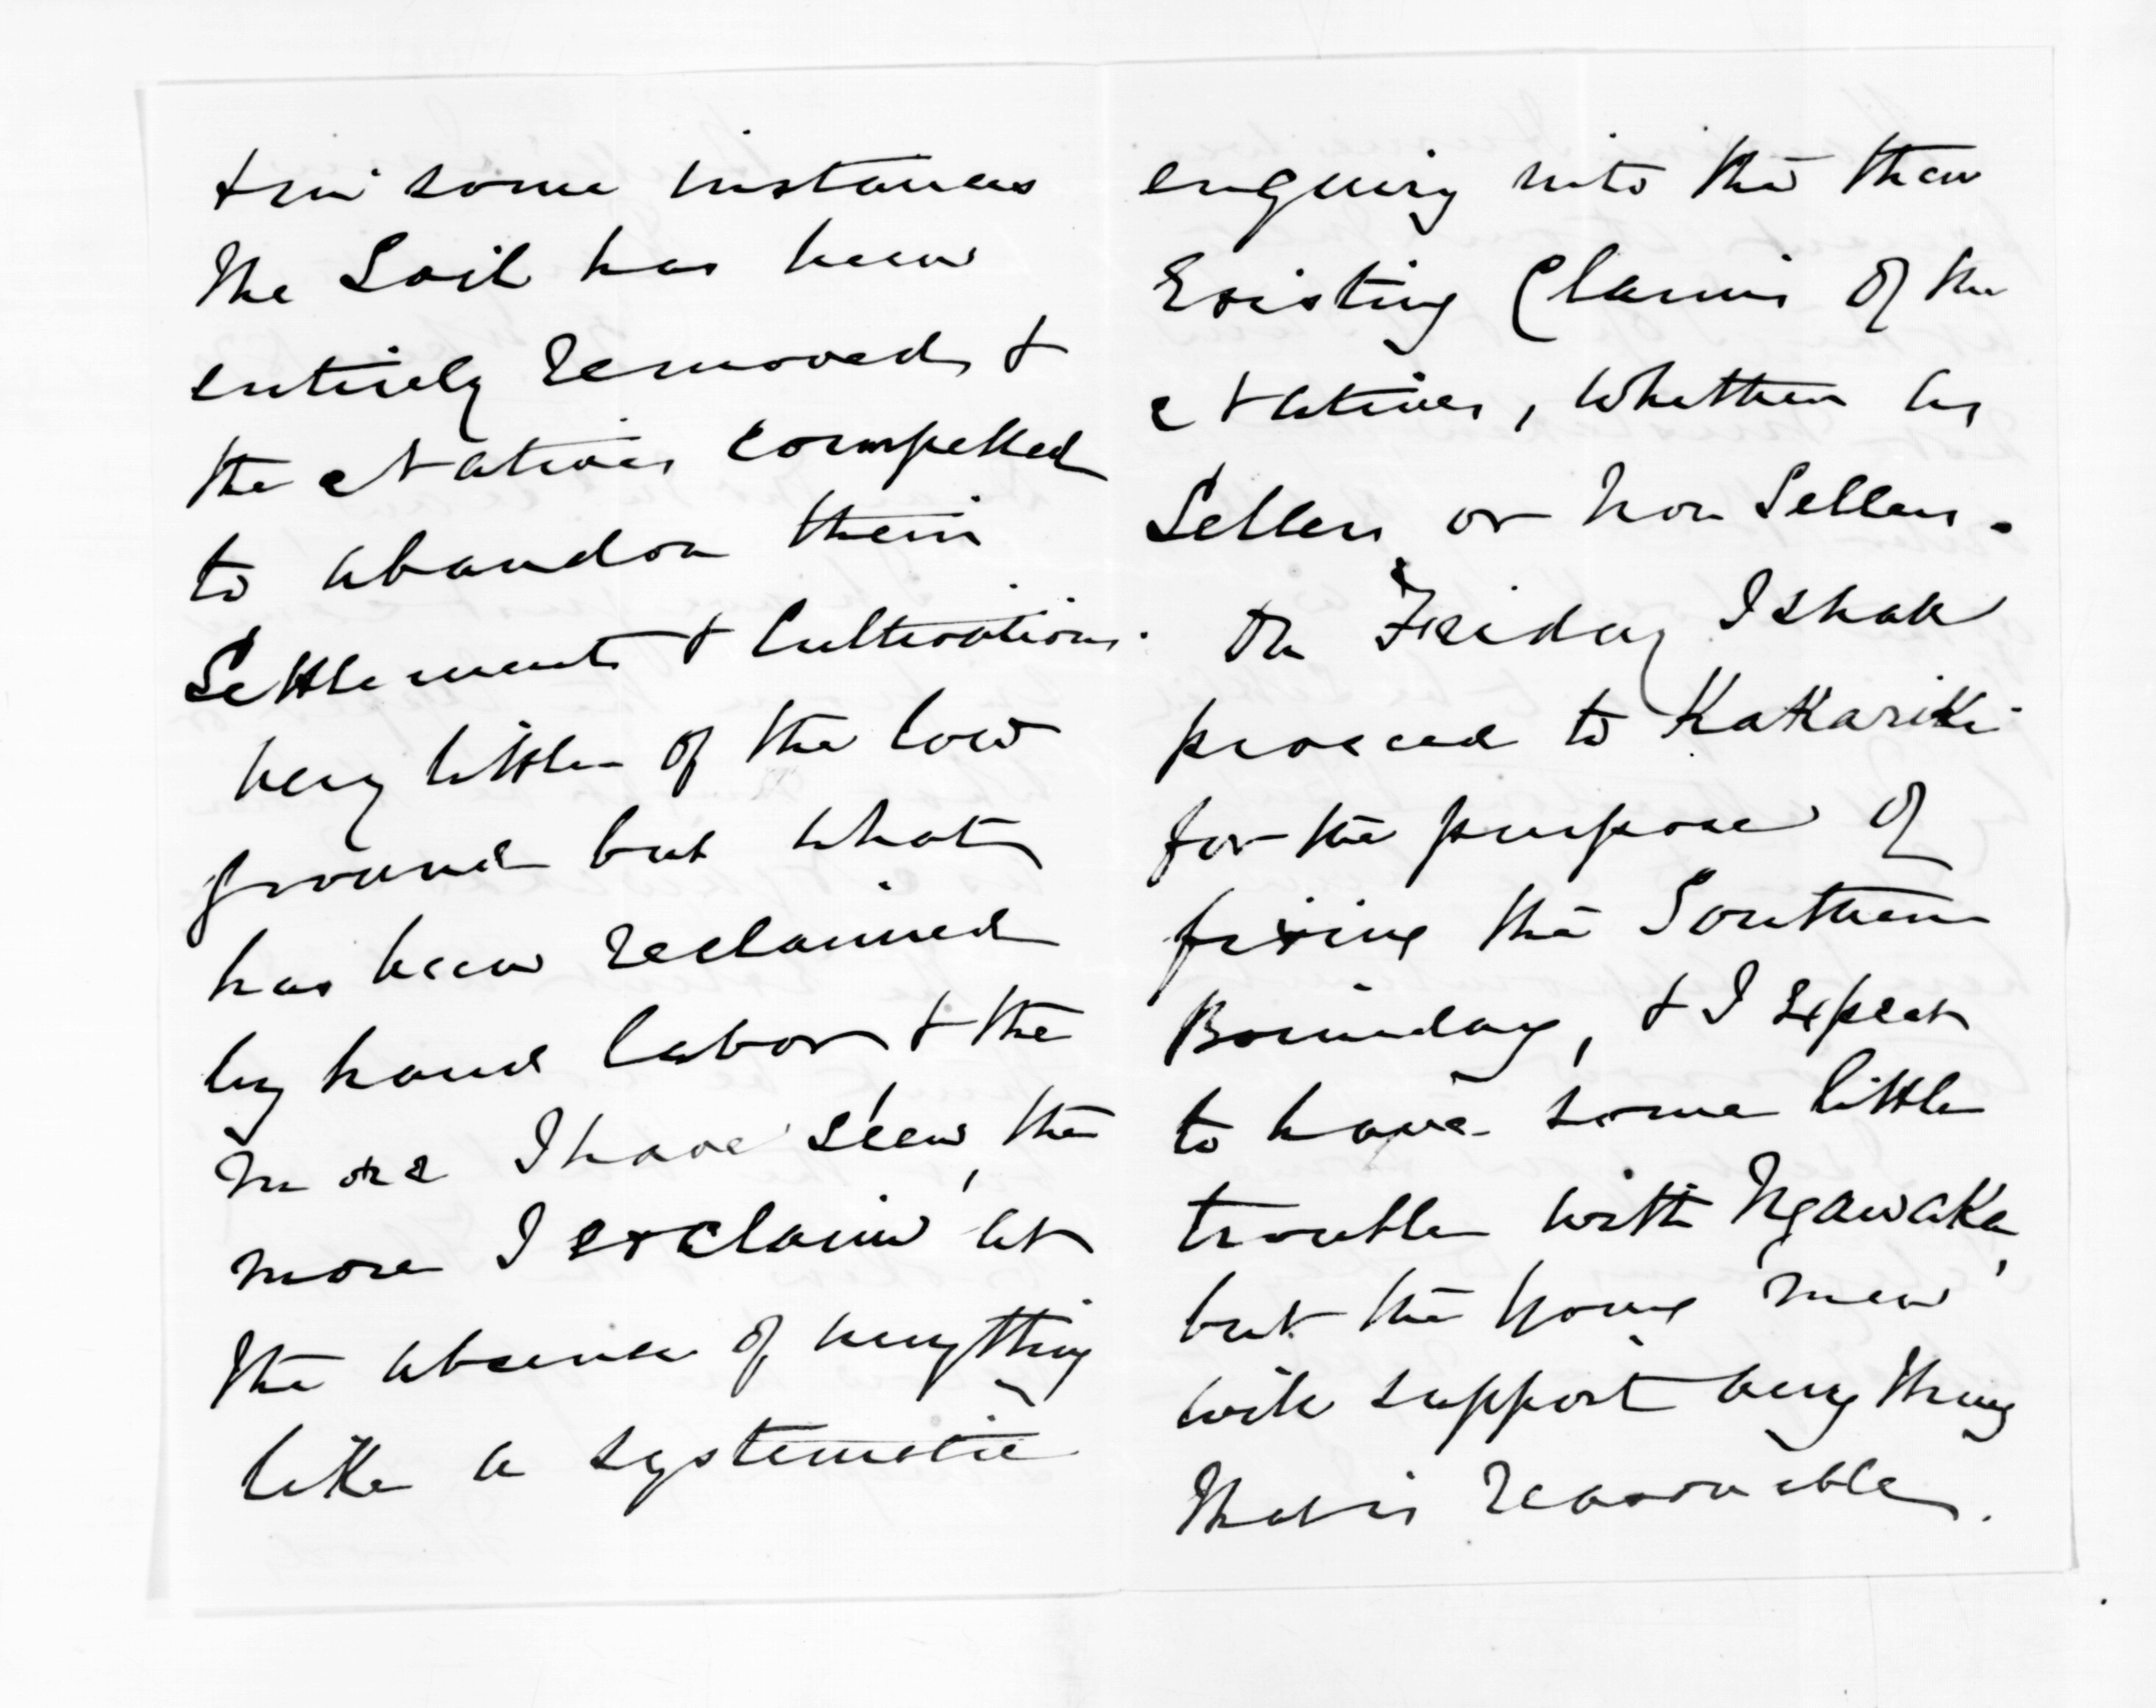 & in some instances
the Soil has been
entirely removed, &
the Natives compelled
to abandon their
Settlements & Cultivations.
Very little of the low
ground but what
has been reclaimed
by hand labor, & the
more I have seen, the
more I exclaim at
the absence of anything
like a systematic
enquiry into the then
Existing Claims of the
Natives, whether as
Sellers or non Sellers.
On Friday I shall
proceed to Kakariki
for the purpose of
fixing the Southern
Boundary, & I expect
to have some little
trouble with Ngawaka,
but the young men
will support any thing
that is reasonable.